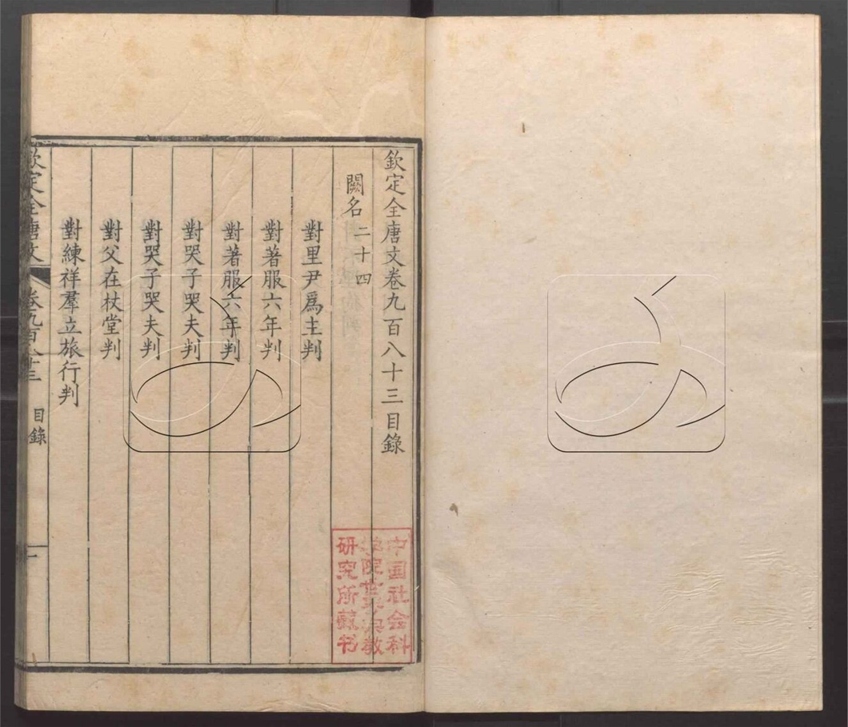 欽定全唐文卷九百八十三目錄
闕名二十四
對里尹爲主判
對著服六年判
對著服六年判
對哭子哭夫判
對哭子哭夫判
對父在杖堂判
對練祥羣立旅行判
欽定全唐文 卷九百八十三 目錄 一
中国社会科
学院世界宗教
研究所藏书